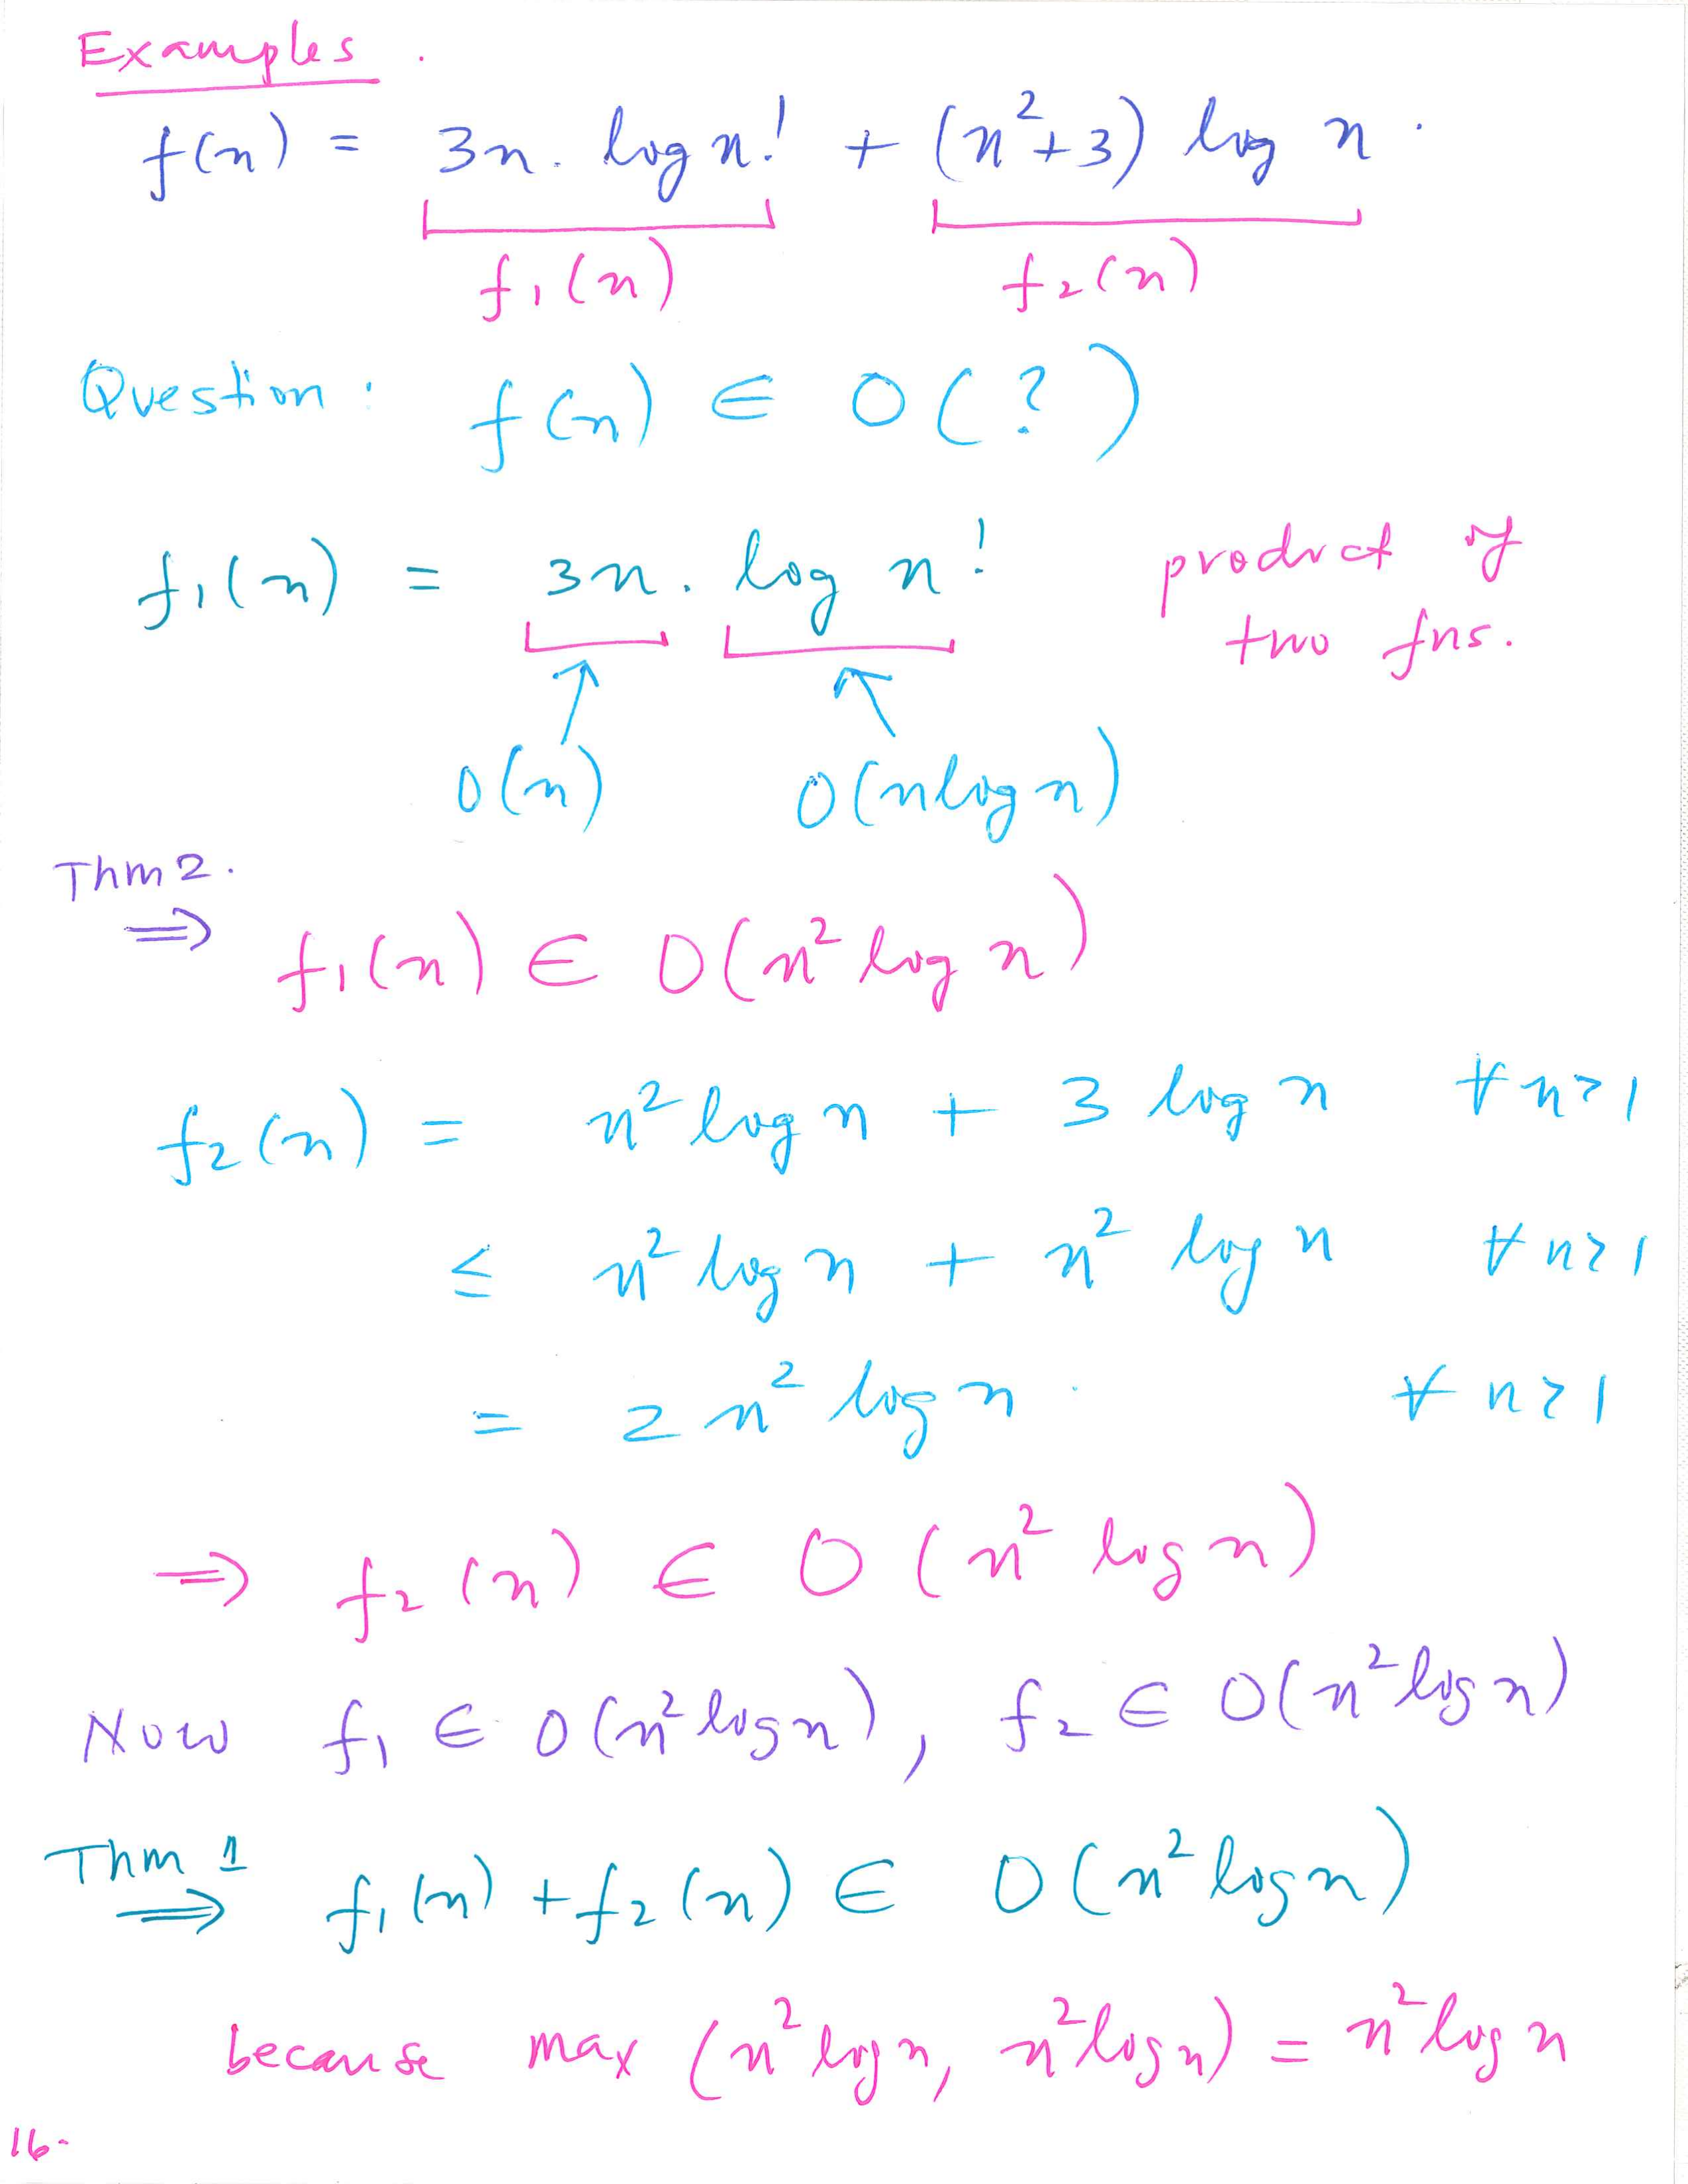 Examples.
f(n) = 3n. log n! + (n²+3) log n.
f₁(n) f₂(n)
Question: f(n) ∈ O(?)
f₁(n) = 3n. log n! product of
two fns.
O(n) O(nlog n)
Thm 2.
⇒ f₁(n) ∈ O(n² log n)
f₂(n) = n² log n + 3 log n ∀ n≥1
≤ n² log n + n² log n ∀ n≥1
= 2 n² log n. ∀ n≥1
⇒ f₂(n) ∈ O(n² log n)
Now f₁ ∈ O(n² log n), f₂ ∈ O(n² log n)
Thm 1
⇒ f₁(n) + f₂(n) ∈ O(n² log n)
because max (n² log n, n² log n) = n² log n
16.